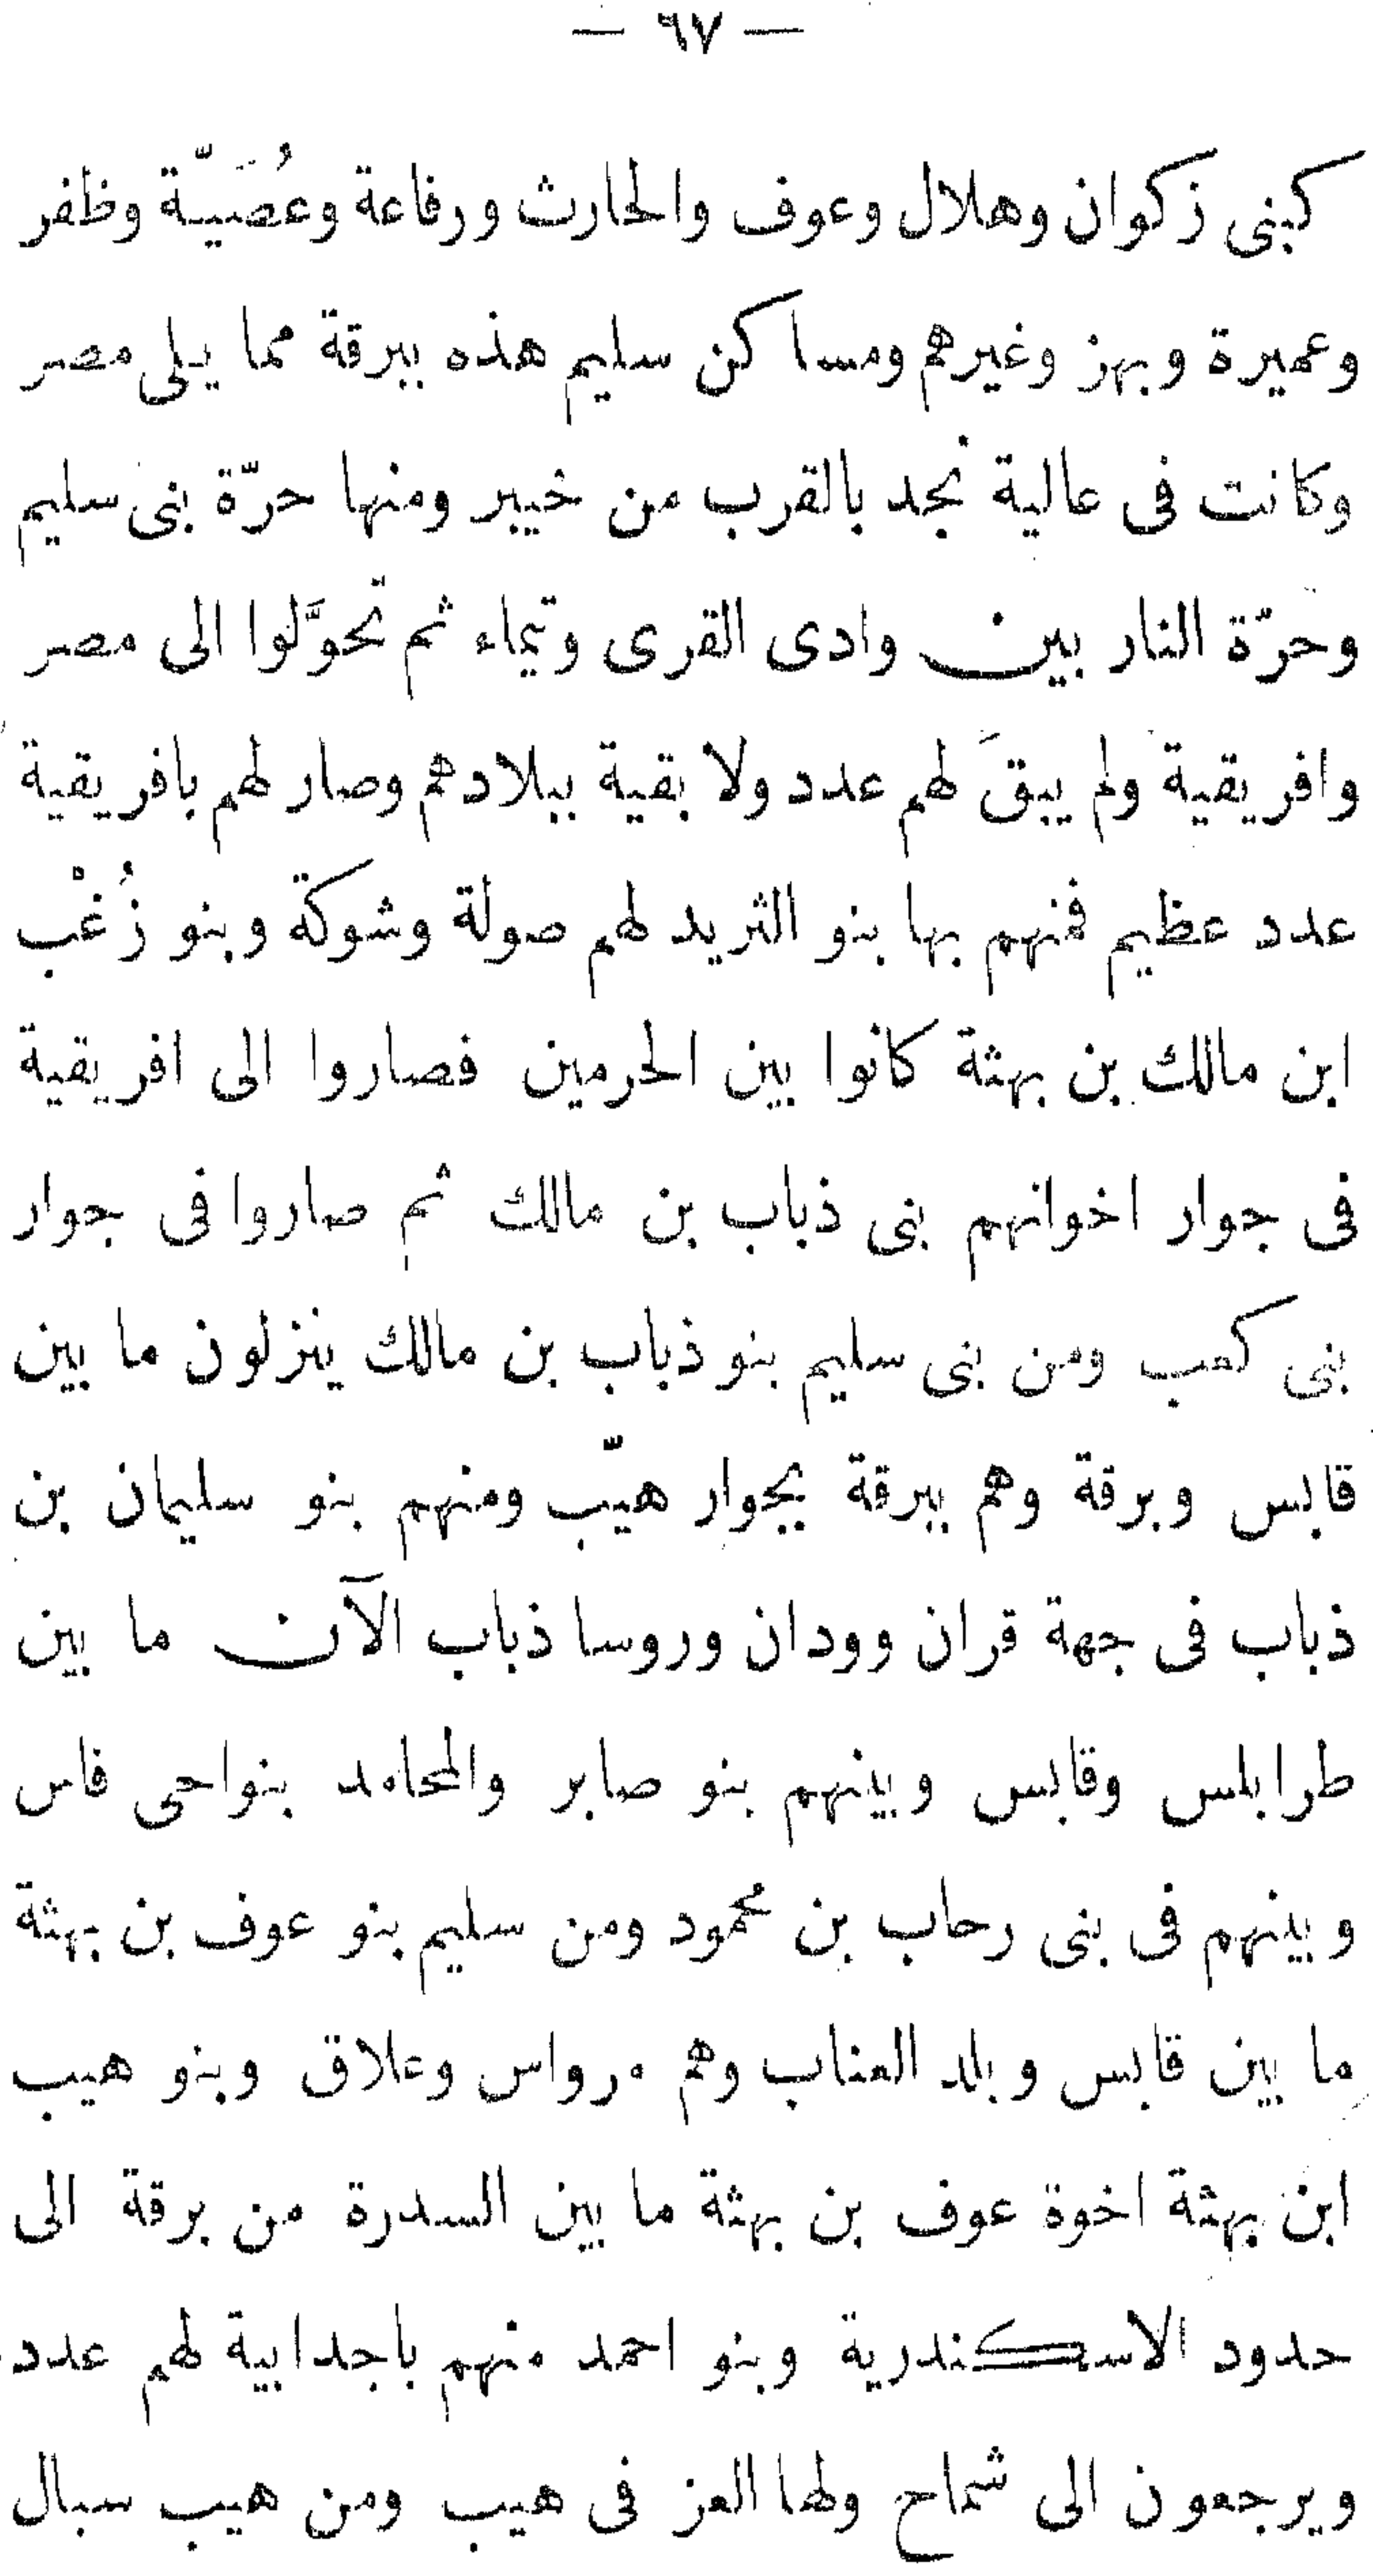 — ٦٧ —
كبنى زكوان وهلال وعوف والحارث ورفاعة وعُصَيّة وظفر
وعميرة وبهز وغيرهم ومساكن سليم هذه ببرقة مما يلى مصر
وكانت فى عالية نجد بالقرب من خيبر ومنها حرّة بنى سليم
وحرّة النار بين وادى القرى وتيماء ثم تحوَّلوا الى مصر
وافريقية ولم يبقَ لهم عدد ولا بقية ببلادهم وصار لهم بافريقية
عدد عظيم فمنهم بها بنو الثريد لهم صولة وشوكة وبنو زُغْب
ابن مالك بن بهثة كانوا بين الحرمين فصاروا الى افريقية
فى جوار اخوانهم بنى ذباب بن مالك ثم صاروا فى جوار
بنى كعب ومن بنى سليم بنو ذباب بن مالك ينزلون ما بين
قابس وبرقة وهم ببرقة بجوار هيّب ومنهم بنو سليمان بن
ذباب فى جهة قران وودان وروسا ذباب الآن ما بين
طرابلس وقابس وبينهم بنو صابر والمحامد بنواحى فاس
وبينهم فى بنى رحاب بن محمود ومن سليم بنو عوف بن بهثة
ما بين قابس وبلد العناب وهم مرواس وعلاق وبنو هيب
ابن بهثة اخوة عوف بن بهثة ما بين السدرة من برقة الى
حدود الاسكندرية وبنو احمد منهم باجدابية لهم عدد
ويرجعون الى شماح ولها العز فى هيب ومن هيب سبال